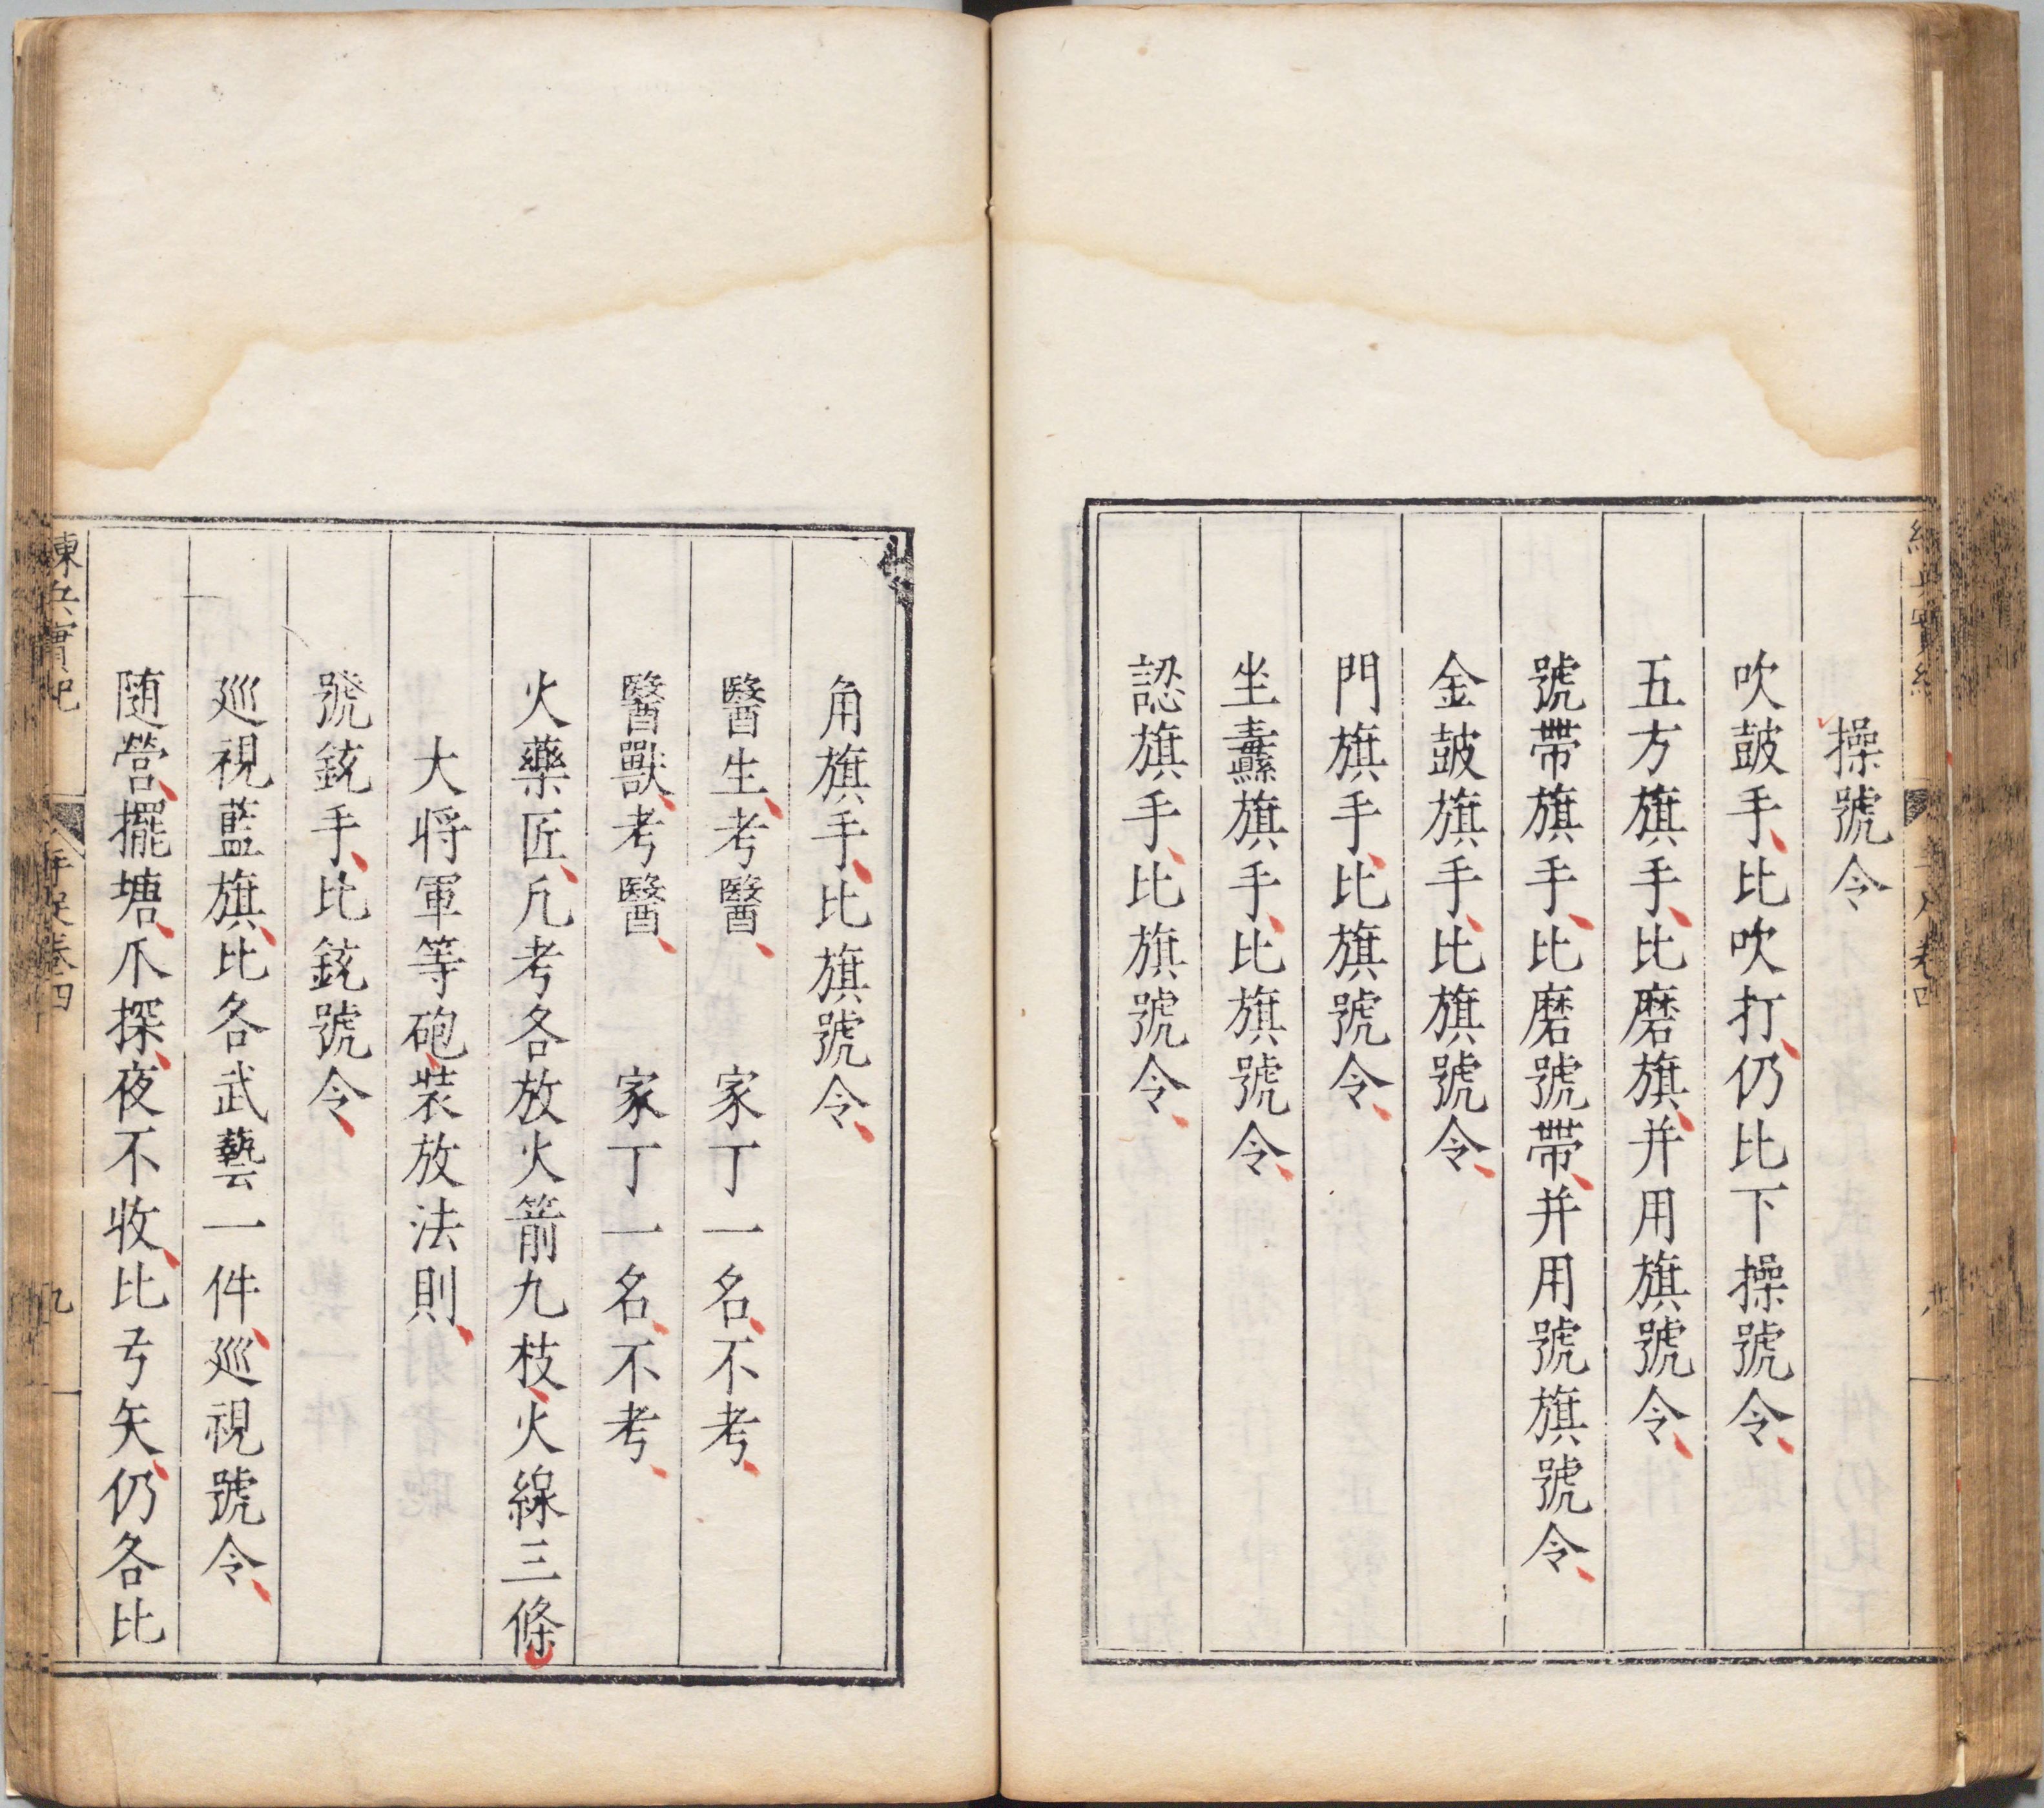 操號令
吹鼓手比吹打仍比下操號令
五方旗手比磨旗并用旗號令
號帶旗手比磨號帶并用號旗號令
金鼓旗手比旗號令
門旗手比旗號令
坐纛旗手比旗號令
認旗手比旗號令
角旗手比旗號令
醫生考醫 家丁一名不考
醫獸考醫 家丁一名不考
火藥匠凢考各放火箭九枝火線三條
大将軍等砲装放法則
號銃手比銃號令
巡視藍旗比各武藝一件巡視號令
随營擺塘爪探夜不收比弓矢仍各比
練兵實紀 卷四 九